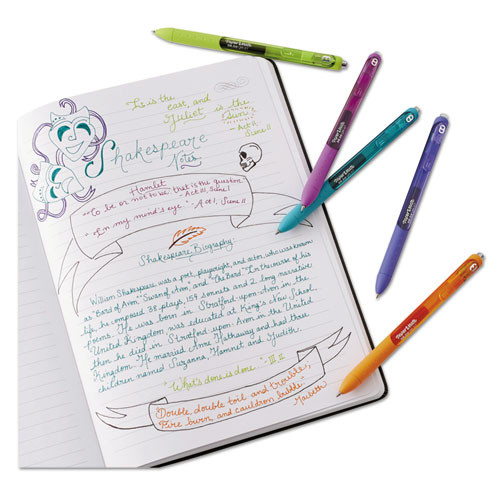 It is the
east, and
Juliet is the
Sun.
-Act II
Scene II
Shakespeare
Notes
Hamlet
"To be or not to be that is the question."
-Act III, Scene I
"In my mind's eye." -Act I, Scene II
Shakespeare Biography
William Shakespeare was a poet, playwright, and actor, who was known
as "Bard of Avon", "Swan of Avon", and "The Bard". In the course of his
life, he composed 38 plays, 154 sonnets and 2 long narrative
poems. He was born in Stratford upon Avon in the
United Kingdom, was educated at King's New School,
then he died in Stratford upon Avon in the United
Kingdom. He married Anne Hathaway and had three
children named Suzanna, Hamnet and Judith.
"What's done is done." -III.II
Double, double toil and trouble,
Fire burn and cauldron bubble"
Macbeth
Paper Mate
Paper Mate
Paper Mate
Paper Mate
Paper Mate